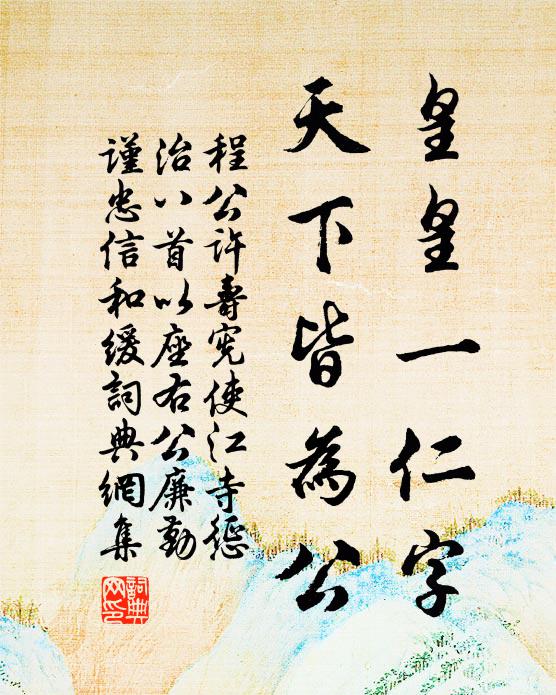 皇皇一仁字
天下皆為公
程公許壽憲使江寺丞
治八首以座右公廉勤
謹忠信和緩詞典網集
詞典網印